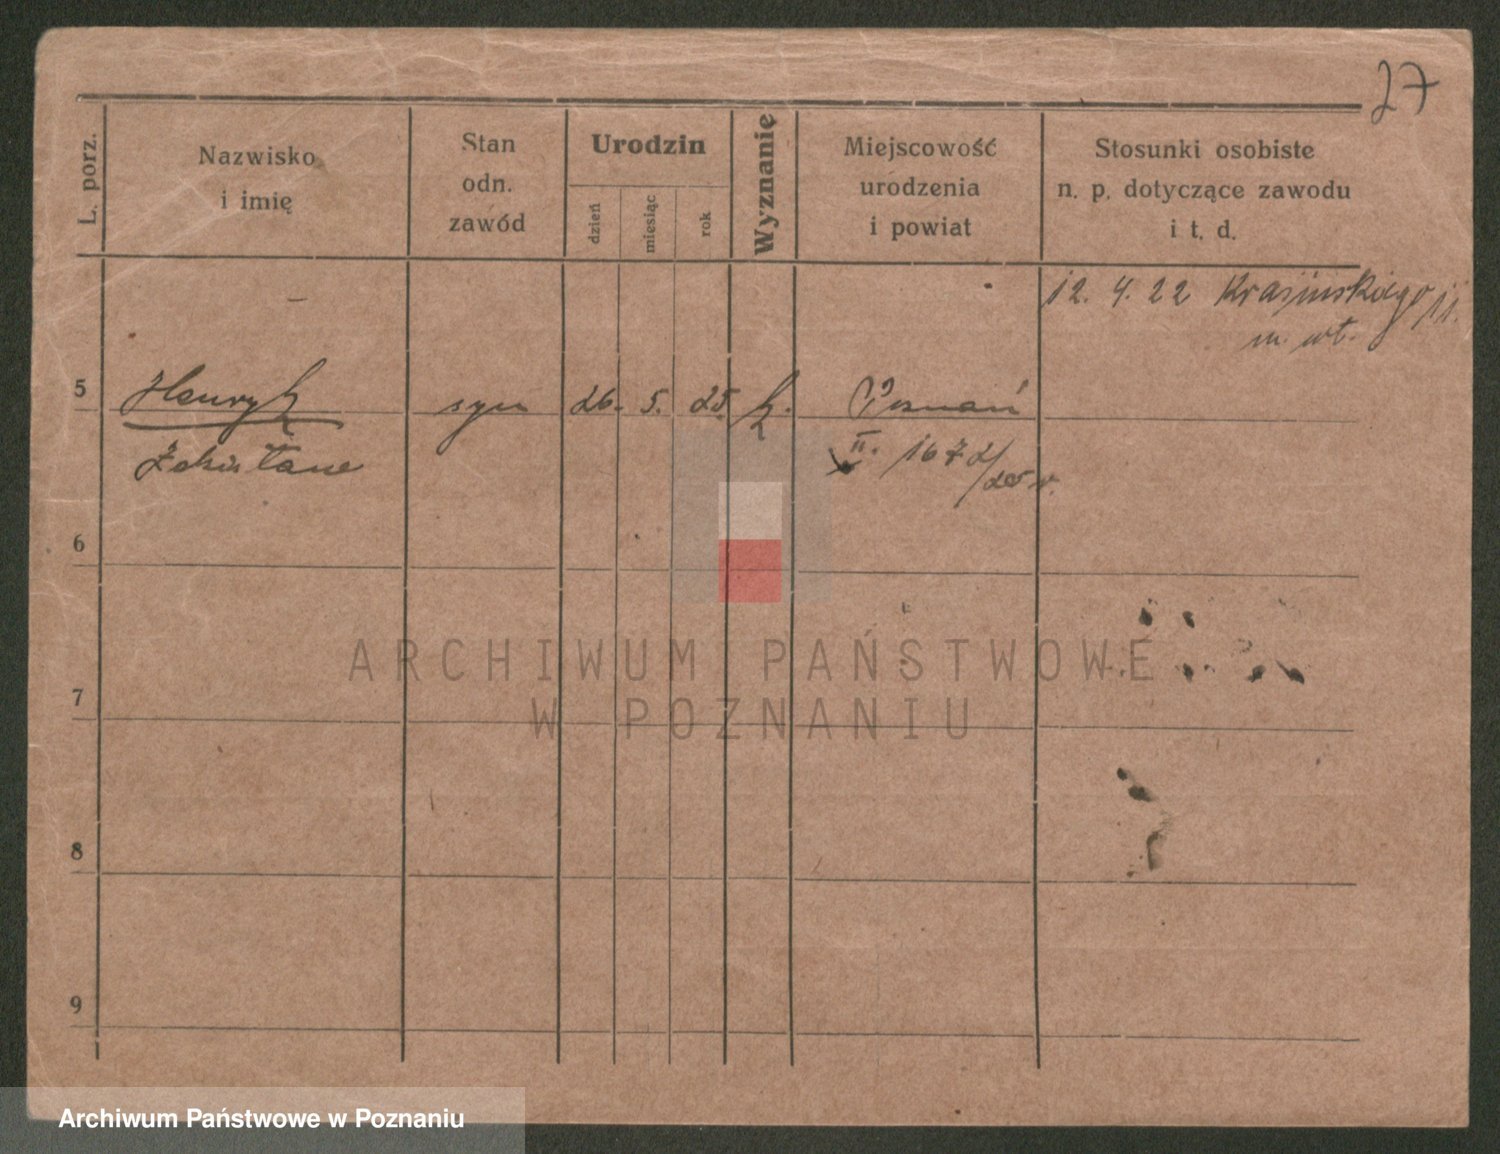 27
L. porz.
Nazwisko
i imię
Stan
odn.
zawód
Urodzin
dzień
miesiąc
rok
Wyznanie
Miejscowość
urodzenia
i powiat
Stosunki osobiste
n. p. dotyczące zawodu
i t. d.
12. 4. 22 Krasińskiego 11.
m. wł.
5 Henryk syn 26. 5. 25 k. Poznań
II. 1672/25 r.
6
ARCHIWUM PAŃSTWOWE
W POZNANIU
7
8
9
Archiwum Państwowe w Poznaniu